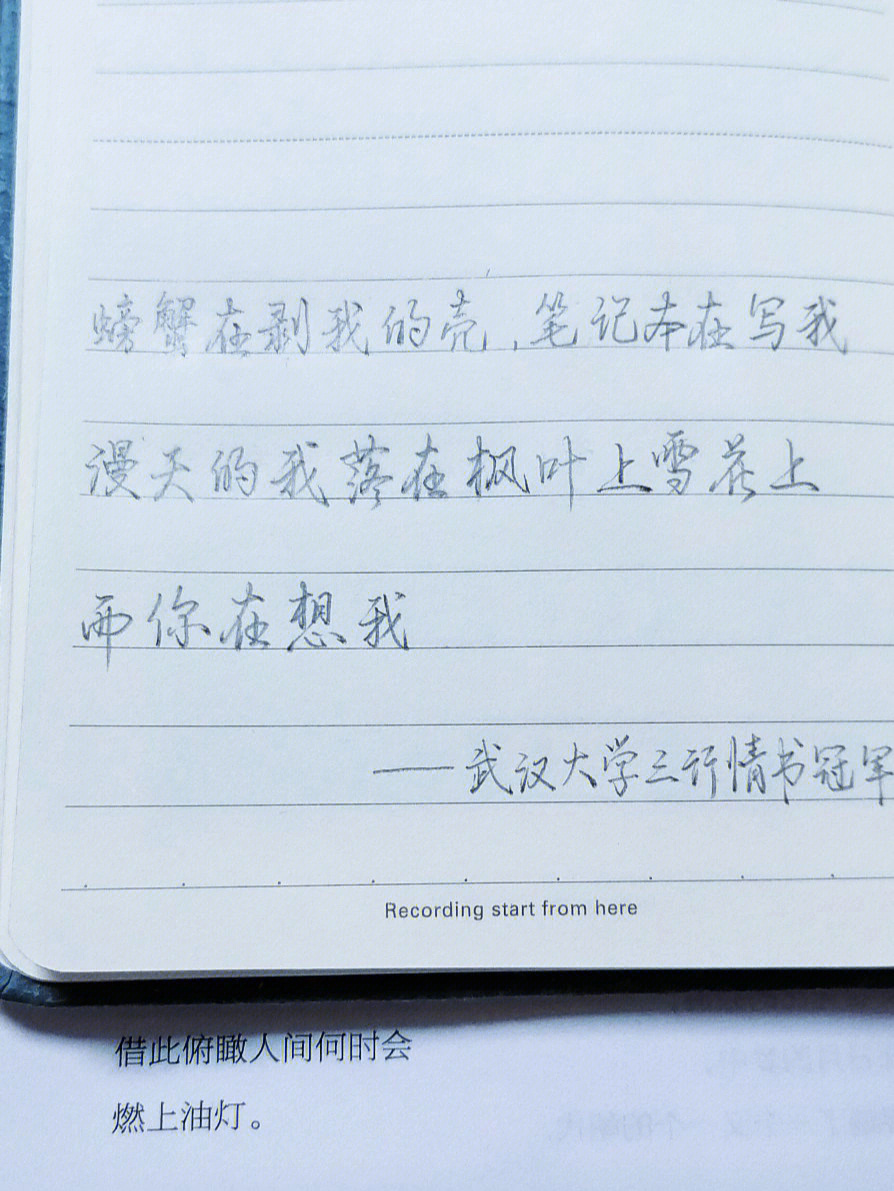 螃蟹在剥我的壳，笔记本在写我
漫天的我落在枫叶上雪花上
而你在想我
——武汉大学三行情书冠军
Recording start from here
借此俯瞰人间何时会
燃上油灯。